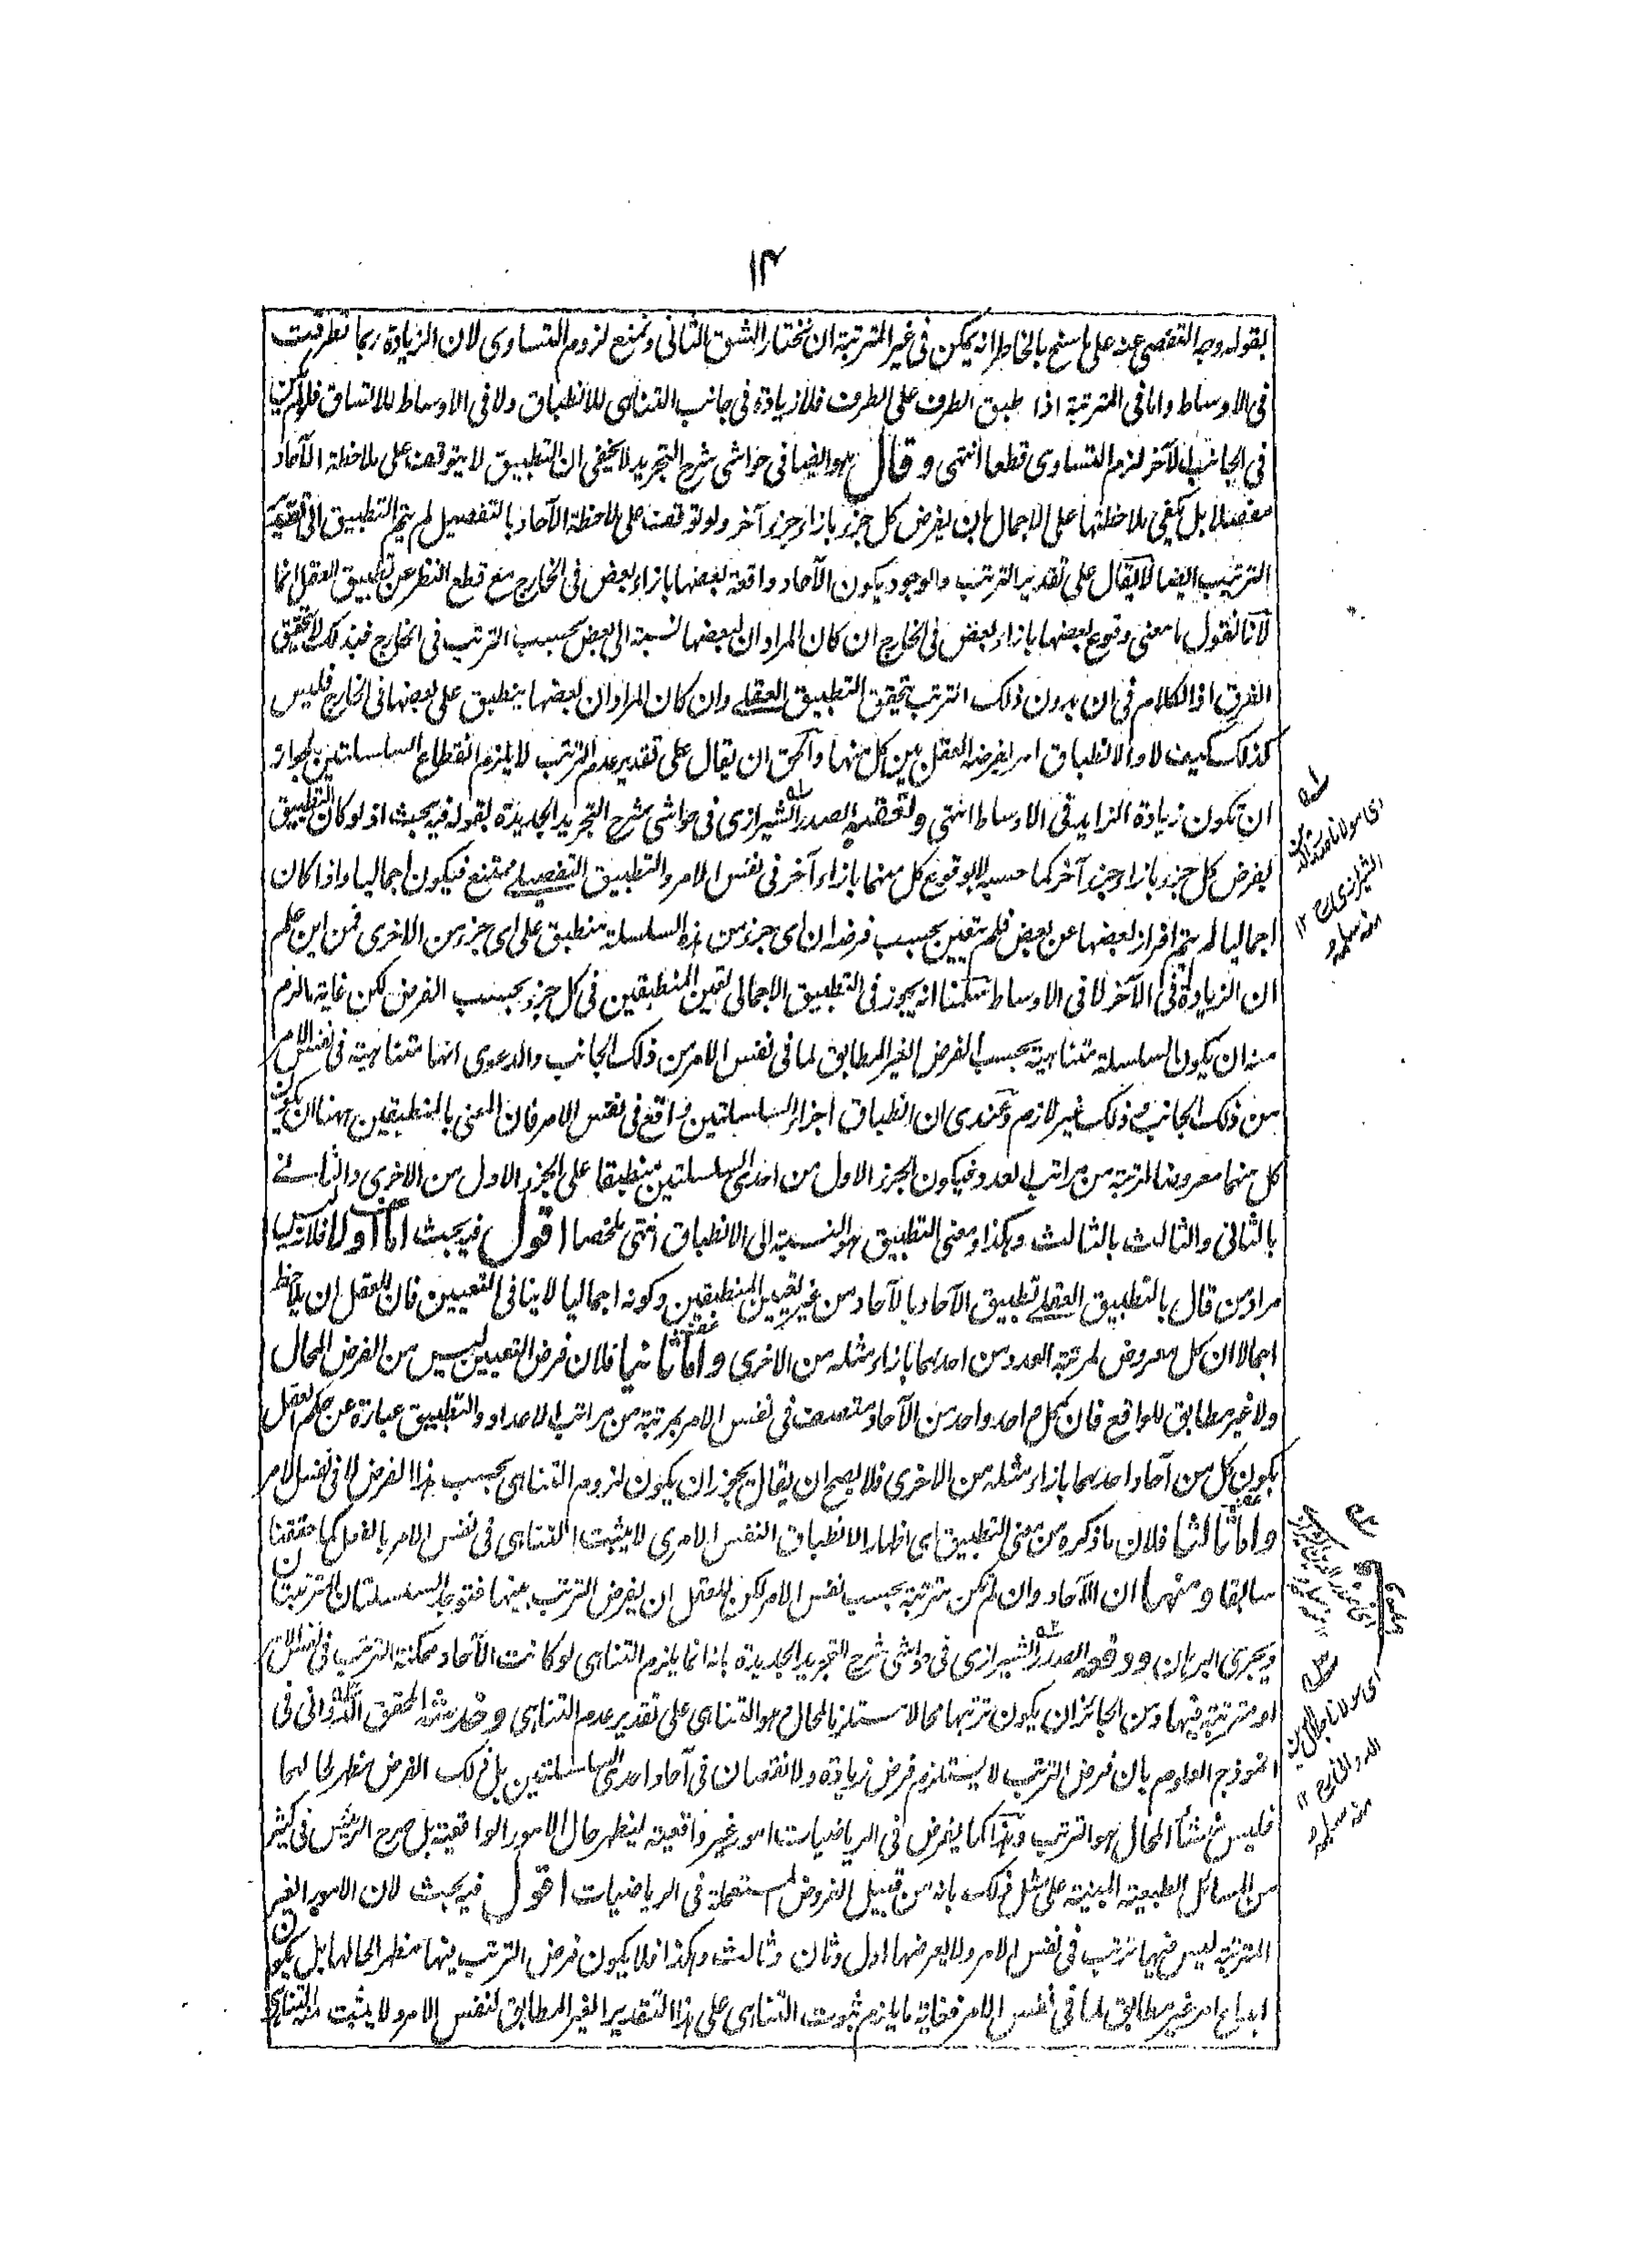 ١٣
بقوله وجه التفصى عنه على ما سنح بالخاطر انه يمكن فى غير المترتبة ان نختار الشق الثانى ونمنع لزوم التساوى لان الزيادة ربما تطرقت
فى الاوساط واما فى المترتبة اذا طبق الطرف على الطرف فلا زيادة فى جانب التناهى للانطباق ولا فى الاوساط للاتساق فلو لم يكن
فى الجانب الآخر لزم التساوى قطعا انتهى وقال هو ايضا فى حواشى شرح التجريد لا يخفى ان التطبيق لا يتوقف على ملاحظة الآحاد
مفصلا بل يكفى ملاحظتها على الاجمال بان يفرض كل جزء بازاء جزء آخر ولو توقف على ملاحظة الآحاد بالتفصيل لم يتم التطبيق فى صورة
الترتيب ايضا لا يقال على تقدير الترتب والوجود يكون الآحاد واقعة بعضها بازاء بعض فى الخارج مع قطع النظر عن تطبيق العقل انما
لانا نقول ما معنى وقوع بعضها بازاء بعض فى الخارج ان كان المراد ان لبعضها نسبة الى بعض بحسب الترتب فى الخارج فبذلك لا يتحقق
الفرق اذ الكلام فى ان بدون ذلك الترتب يتحقق التطبيق العقلے وان كان المراد ان بعضها ينطبق على بعضها فى الخارج فليس
كذلك كيف لا والانطباق امر يفرضه العقل بين كل منها والحق ان يقال على تقدير عدم الترتب لا يلزم انقطاع السلسلتين لجواز
ان تكون زيادة الزايد فى الاوساط انتهى وتعقبه الصدر الشيرازى فى حواشى شرح التجريد الجديدة بقوله فيه بحث اذ لو كان التطبيق
بفرض كل جزء بازاء جزء آخر كما حسبه لا بوقوع كل منهما بازاء آخر فى نفس الامر والتطبيق التفصيلے ممتنع فيكون اجماليا واذا كان
اجماليا لم يتم افراز بعضها عن بعض فلم يتعين بحسب فرضه ان اى جزء من هذه السلسلة منطبق على اى جزء من الاخرى فمن اين علم
ان الزيادة فى الآخر لا فى الاوساط سلمنا انه يجوز فى التطبيق الاجمالى تعين المنطبقين فى كل جزء بحسب الفرض لكن غاية ما لزم
منه ان يكون السلسلة متناهية بحسب الفرض الغير المطابق لما فى نفس الامر من ذلك الجانب والدعوى انها متناهية فى نفس الامر
من ذلك الجانب وذلك غير لازم وعندى ان انطباق اجزاء السلسلتين واقع فى نفس الامر فان المعنى بالمنطبقين ههنا ان يكون
كل منهما معروضا لمرتبة من مراتب العدد فيكون الجزء الاول من احدى السلسلتين منطبقا على الجزء الاول من الاخرى والثانے
بالثانى والثالث بالثالث وهكذا ومعنى التطبيق هو النسبة الى الانطباق انتهى ملخصا اقول فيه بحث اما اولا فلانه ليس
مراد من قال بالتطبيق العقلے تطبيق الآحاد بالآحاد من غير تعيين المنطبقين وكونه اجماليا لا ينافى التعيين فان للعقل ان يلاحظ
اجمالا ان كل معروض لمرتبة العدد من احدهما بازاء مثله من الاخرى واما ثانيا فلان فرض التعيين ليس من الفرض المحال
ولا غير مطابق للواقع فان كل واحد واحد من الآحاد متصف فى نفس الامر بمرتبة من مراتب الاعداد والتطبيق عبارة عن حكم العقل
بكون كل من آحاد احدهما بازاء مثله من الاخرى فلا يصح ان يقال يجوز ان يكون لزوم التناهى بحسب هذا الفرض لا فى نفس الامر
واما ثالثا فلان ما ذكره من معنى التطبيق اى اظهار الانطباق النفس الامرى لا يثبت التناهى فى نفس الامر بالفعل كما حققنا
سابقا ومنها ان الآحاد وان لم تكن مترتبة بحسب نفس الامر لكن للعقل ان يفرض الترتب بينها فتوجد السلسلتان المترتبتان
ويجرى البرهان ودفعه الصدر الشيرازى فى حواشى شرح التجريد الجديدة بانه انما يلزم التناهى لو كانت الآحاد ممكنة الترتب فى نفس الامر
او مترتبة فيها ومن الجائز ان يكون ترتبها محالا مستلزما لمحال هو التناهى على تقدير عدم التناهى وخدشه المحقق الدوانى فى
انموذج العلوم بان فرض الترتب لا يستلزم فرض زيادة ولا نقصان فى آحاد احدى السلسلتين بل ذلك الفرض مظهر لحالهما
فليس منشأ المحال هو الترتب وهذا كما يفرض فى الرياضيات امور غير واقعية ليظهر حال الامور الواقعية بل صرح الرئيس فى كثير
من المسائل الطبيعية المبنية على مثل ذلك بانه من قبيل الفروض المستعملة فى الرياضيات اقول فيه بحث لان الامور الغير
المترتبة ليس فيها ترتب فى نفس الامر ولا يعرضها اول وثان وثالث وهكذا فلا يكون فرض الترتب فيها مظهر لحالها بل يكون
ابداع امر غير مطابق لما فى نفس الامر فغاية ما يلزم ثبوت التناهى على هذا التقدير الغير المطابق لنفس الامر ولا يثبت منه التناهى
اى مولانا صدر الدين
الشيرازى رح ١٢
منه سلمه
اى مولانا جلال الدين
الدوانى رح ١٢
منه سلمه